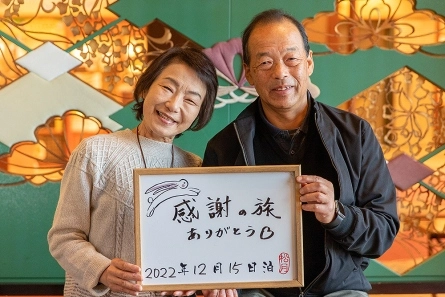 感謝の旅
ありがとう
2022年12月15日泊